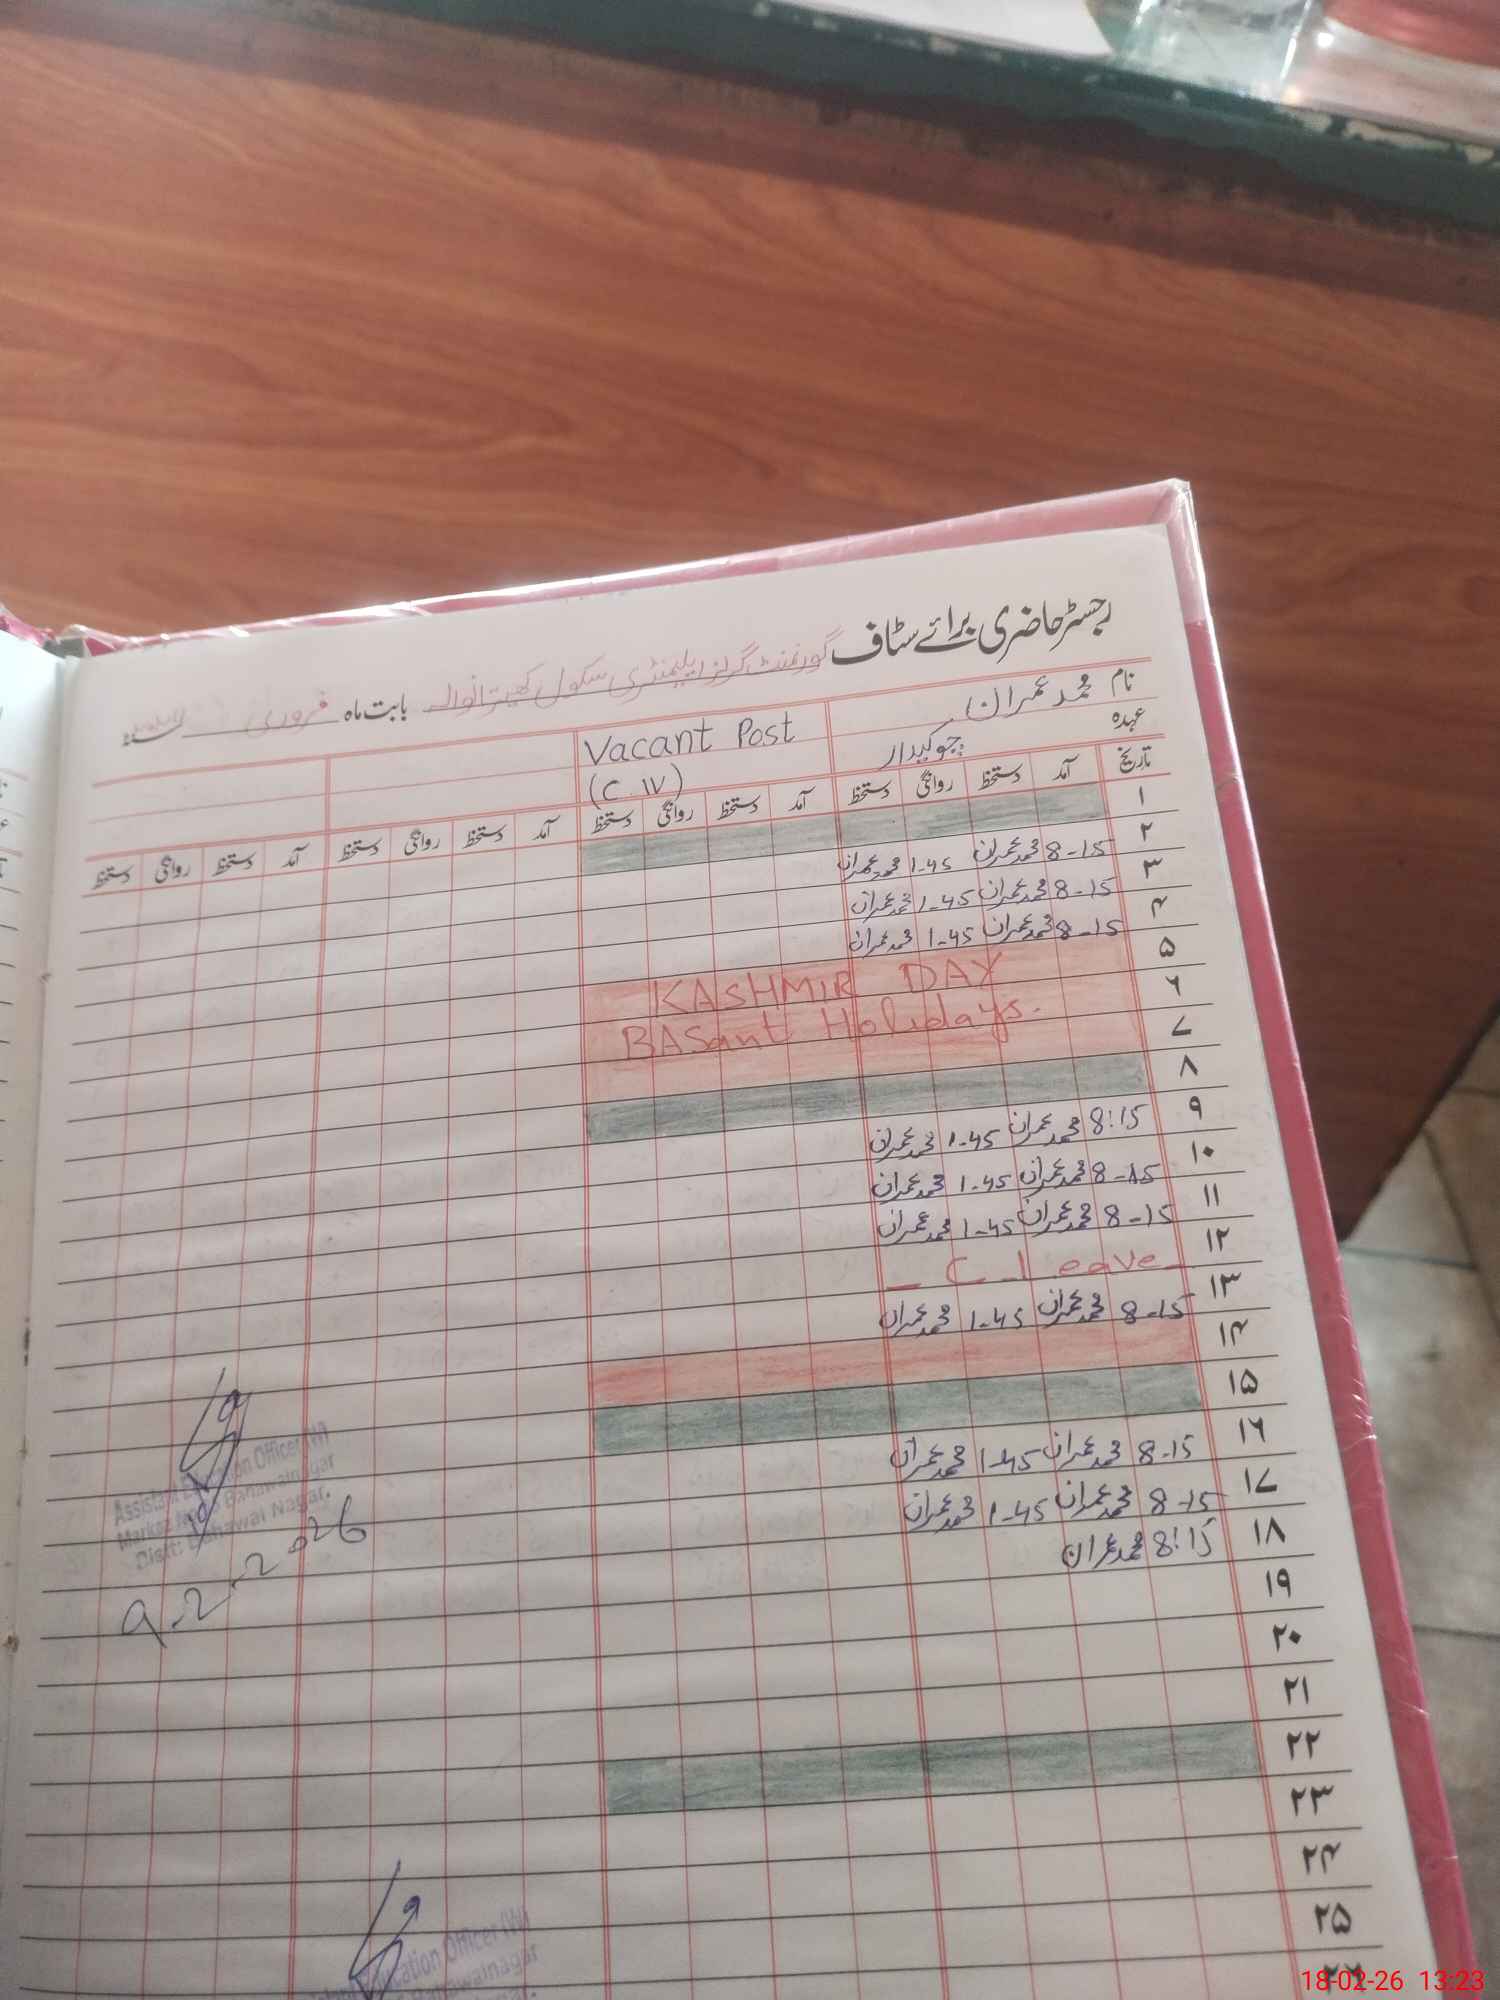 رجسٹر حاضری برائے سٹاف گورنمنٹ گرلز ایلیمنٹری سکول بابت ماہ فروری
نام محمد عمران
Vacant Post
عہدہ چوکیدار
(C.IV)
تاریخ آمد دستخط روانگی دستخط آمد دستخط روانگی دستخط آمد دستخط روانگی دستخط آمد دستخط روانگی دستخط
۱
۲ 8-15 محمد عمران 1-45 محمد عمران
۳ 8-15 محمد عمران 1-45 محمد عمران
۴ 8-15 محمد عمران 1-45 محمد عمران
۵ KASHMIR DAY
۶ BASant Holidays.
۷
۸
۹ 8:15 محمد عمران 1-45 محمد عمران
۱۰ 8-15 محمد عمران 1-45 محمد عمران
۱۱ 8-15 محمد عمران 1-45 محمد عمران
۱۲ - C. Leave -
۱۳ 8-15 محمد عمران 1-45 محمد عمران
۱۴
۱۵
۱۶ 8-15 محمد عمران 1-45 محمد عمران
۱۷ 8-15 محمد عمران 1-45 محمد عمران
۱۸ 8:15 محمد عمران
۱۹
۲۰
۲۱
۲۲
۲۳
۲۴
۲۵
Assistant Education Officer (W)
Markaz Bahawalnagar
Distt: Bahawal Nagar.
9-2-2026
Education Officer (W)
Bahawalnagar
18-02-26 13:23